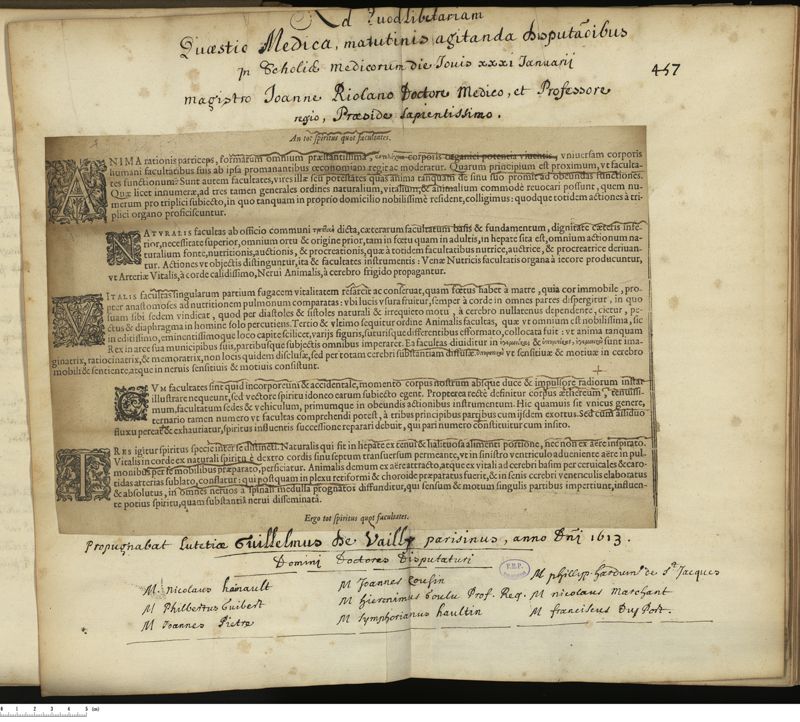 Ad Quodlibetariam
Quæstio Medica, matutinis agitanda disputaõibus
in Scholis medicorum die Jouis xxxi Januarij
457
magistro Joanne Riolano Doctore Medico, et Professore
regio, Præside sapientissimo.
An tot spiritus quot facultates.
ANIMA rationis particeps, formarum omnium præstantissima, corporis organici potentia viuentis, vniuersam corporis
humani facultatibus suis ab ipsa promanantibus œconomiam regit ac moderatur. Quarum principium est proximum, vt faculta-
tes functionum? Sunt autem facultates, vires illæ seu potestates quas anima tanquam de sinu suo promit ad obeundas functiones.
Quæ licet innumeræ, ad tres tamen generales ordines naturalium, vitalium, & animalium commodè reuocari possunt, quem nu-
merum pro triplici subiecto, in quo tanquam in proprio domicilio nobilissimè resident, colligimus: quodque totidem actiones à tri-
plici organo proficiscuntur.
NATVRALIS facultas ab officio communi dicta, cæterarum facultatum basis & fundamentum, dignitate cæteris infe-
rior, necessitate superior, omnium ortu & origine prior, tam in fœtu quam in adultis, in hepate sita est, omnium actionum na-
turalium fonte, nutritionis, auctionis, & procreationis, quæ à totidem facultatibus nutrice, auctrice, & procreatrice deriuan-
tur. Actiones vt obiectis distinguuntur, ita & facultates instrumentis: Venæ Nutricis facultatis organa à iecore producuntur,
vt Arteriæ Vitalis, à corde calidissimo, Nerui Animalis, à cerebro frigido propagantur.
VITALIS facultas singularum partium fugacem vitalitatem resarcit ac conseruat, quam fœtus habet à matre, quia cor immobile, pro-
pter anastomoses ad nutritionem pulmonum comparatas: vbi lucis vsura fruitur, semper à corde in omnes partes dispergitur, in quo
suam sibi sedem vindicat, quod per diastoles & sistoles naturali & irrequieto motu, à cerebro nullatenus dependente, cietur, pe-
ctus & diaphragma in homine solo percutiens. Tertio & vltimo sequitur ordine Animalis facultas, quæ vt omnium est nobilissima, sic
in editissimo, eminentissimoque loco capite scilicet, varijs figuris, suturisque differentibus efformato, collocata fuit: vt anima tanquam
Rex in arce sua municipibus suis, partibusque subiectis omnibus imperaret. Ea facultas diuiditur in & sunt ima-
ginatrix, ratiocinatrix, & memoratrix, non locis quidem disclusæ, sed per totam cerebri substantiam diffusæ. vt sensitiuæ & motiuæ in cerebro
mobili & sentiente, atque in neruis sensitiuis & motiuis consistunt.
CVM facultates sint quid incorporeum & accidentale, momento corpus nostrum absque duce & impulsore radiorum instar
illustrare nequeunt, sed vectore spiritu idoneo earum subiecto egent. Propterea rectè definitur corpus æthereum, tenuissi-
mum, facultatum sedes & vehiculum, primumque in obeundis actionibus instrumentum. Hic quamuis sit vnicus genere,
ternario tamen numero vt facultas comprehendi potest, à tribus principibus partibus cum ijsdem exortus. Sed cum assiduo
fluxu pereat & exhauriatur, spiritus influentis successione reparari debuit, qui pari numero constituitur cum insito.
TRES igitur spiritus specie inter se distincti. Naturalis qui fit in hepate ex tenui & halituosa alimenti portione, nec non ex aëre inspirato.
Vitalis in corde ex naturali spiritu è dextro cordis sinu septum transuersum permeante, vt in sinistro ventriculo adueniente aëre in pul-
monibus per se mobilibus præparato, perficiatur. Animalis demum ex aëre attracto, atque ex vitali ad cerebri basim per ceruicales & caro-
tidas arterias sublato, conflatur: qui postquam in plexu retiformi & choroide præparatus fuerit, & in senis cerebri ventriculis elaboratus
& absolutus, in omnes neruos à spinali medulla prognatos diffunditur, qui sensum & motum singulis partibus impertiunt, influen-
te potius spiritu, quam substantia nerui disseminata.
Ergo tot spiritus quot facultates.
Propugnabat Lutetiæ Guillelmus De Vailly parisinus, anno Dñi 1613.
Domini Doctores Disputaturi
M. Nicolaus hénault
M Joannes Cousin
M philipp. harduin de St Jacques
M Philbertus Guibert
M hieronimus Goulu Prof. Reg.
M nicolaus Marchant
M Joannes Pietre
M Symphorianus haultin
M franciscus Du Port.
0 1 2 3 4 5 (cm)